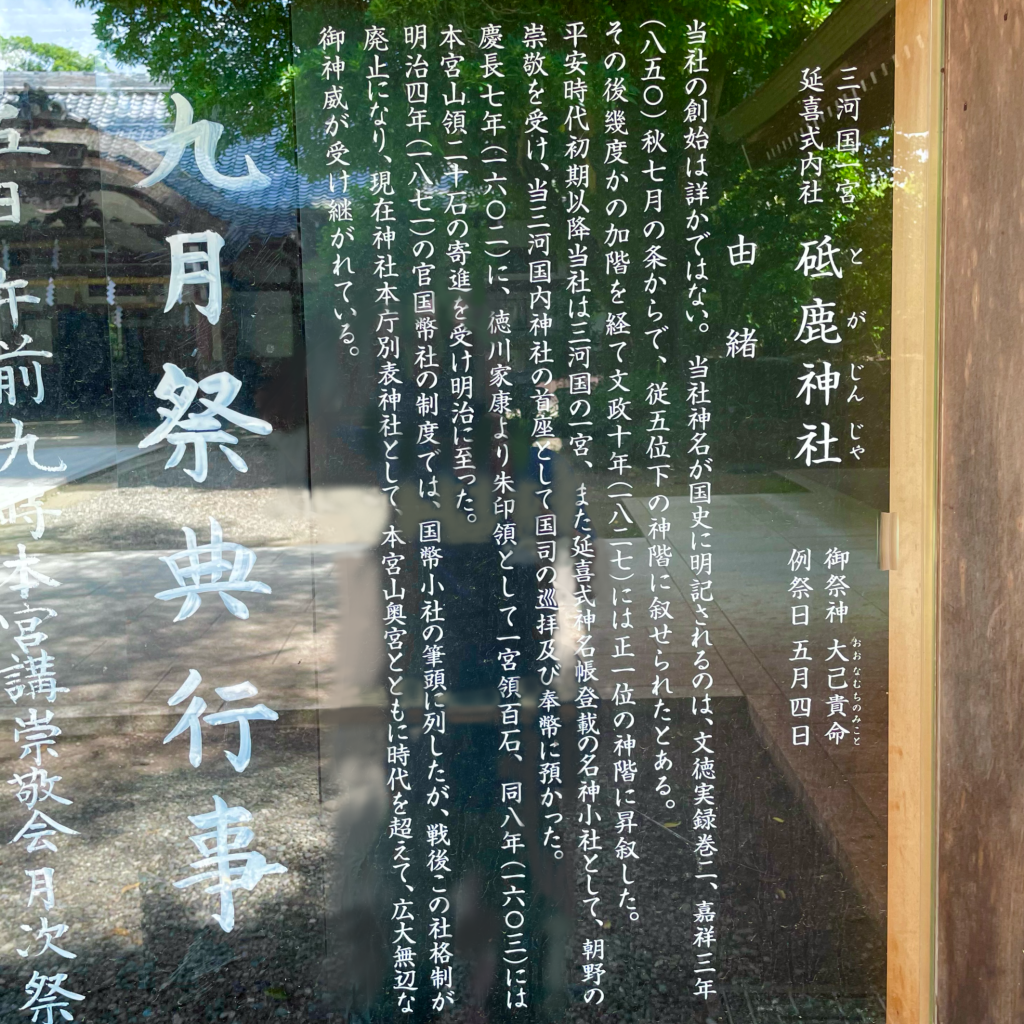 三河国一宮
延喜式内社
砥鹿神社
とがじんじゃ
御祭神 大己貴命
おおなむちのみこと
例祭日 五月四日
由緒
当社の創始は詳かではない。当社神名が国史に明記されるのは、文徳実録巻二、嘉祥三年
(八五〇)秋七月の条からで、従五位下の神階に叙せられたとある。
その後幾度かの加階を経て文政十年(一八二七)には正一位の神階に昇叙した。
平安時代初期以降当社は三河国の一宮、また延喜式神名帳登載の名神小社として、朝野の
崇敬を受け、当三河国内神社の首座として国司の巡拝及び奉幣に預かった。
慶長七年(一六〇二)に、徳川家康より朱印領として一宮領百石、同八年(一六〇三)には
本宮山領二十石の寄進を受け明治に至った。
明治四年(一八七一)の官国幣社の制度では、国幣小社の筆頭に列したが、戦後この社格制が
廃止になり、現在神社本庁別表神社として、本宮山奥宮とともに時代を超えて、広大無辺な
御神威が受け継がれている。
九月祭典行事
五日 午前九時本宮講崇敬会月次祭